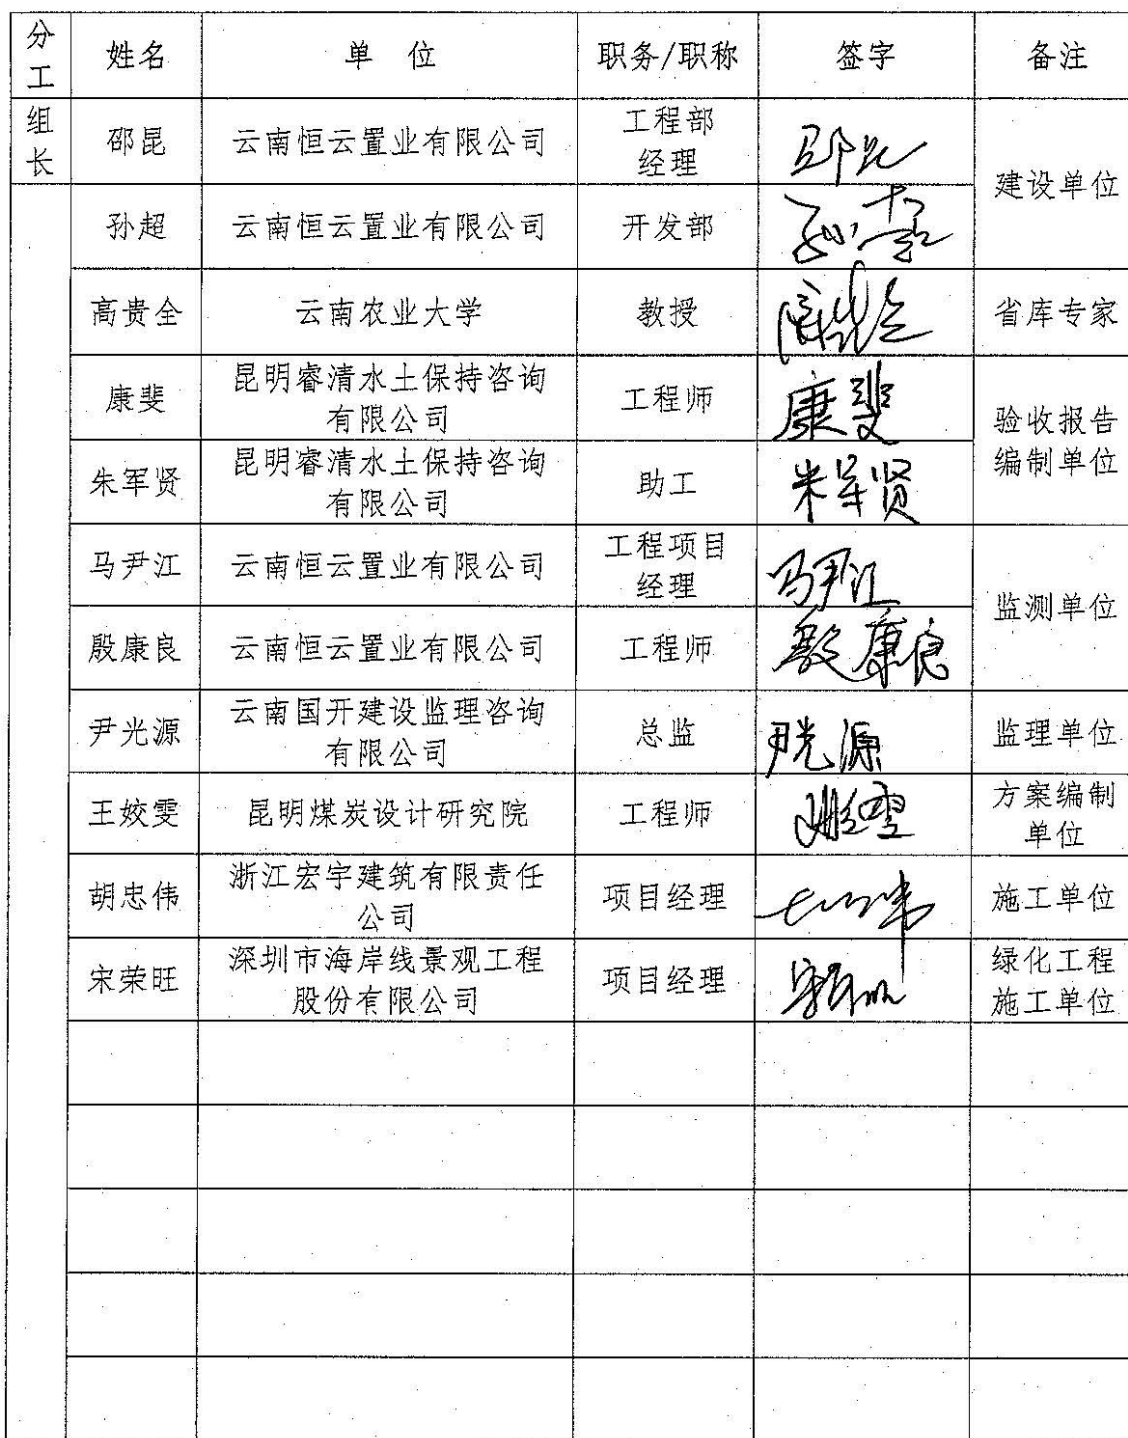 分工 姓名 单 位 职务/职称 签字 备注
组长 邵昆 云南恒云置业有限公司 工程部经理 邵昆 建设单位
孙超 云南恒云置业有限公司 开发部 孙超
高贵全 云南农业大学 教授 高贵全 省库专家
康斐 昆明睿清水土保持咨询有限公司 工程师 康斐 验收报告编制单位
朱军贤 昆明睿清水土保持咨询有限公司 助工 朱军贤
马尹江 云南恒云置业有限公司 工程项目经理 马尹江 监测单位
殷康良 云南恒云置业有限公司 工程师 殷康良
尹光源 云南国开建设监理咨询有限公司 总监 尹光源 监理单位
王姣雯 昆明煤炭设计研究院 工程师 方案编制单位
胡忠伟 浙江宏宇建筑有限责任公司 项目经理 施工单位
宋荣旺 深圳市海岸线景观工程股份有限公司 项目经理 绿化工程施工单位